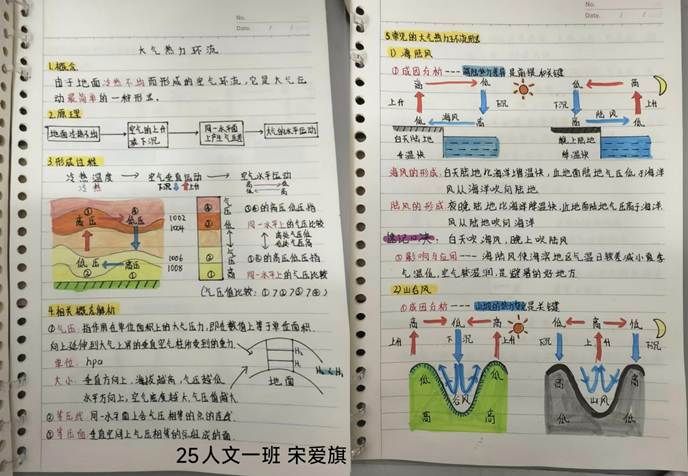 No.
Date
大气热力环流
1.概念
由于地面冷热不均而形成的空气环流,它是大气运
动最简单的一种形式。
2.原理
地面冷热不均
空气的上升
或下沉
同一水平面
上产生气压差
大气的水平运动
3.形成过程
冷热温度 → 空气垂直运动 → 空气水平运动
冷 热
下沉 上升
高 低
① 高压
④ 低压
低压 ②
高压 ③
1002
1004
1006
1008
同一水平上的气压比较
同一水平上的气压比较
4.相关概念解析
①气压:指作用在单位面积上的大气压力,即在数值上等于单位面积
向上延伸到大气上界的垂直空气柱所受到的重力
单位:hpa
大小:垂直方向上,海拔越高,气压越低
水平方向上,空气密度越大,气压值越大
地面
②等压线:同一水平面上各气压相等的点的连线
③等压面:垂直空间上气压相等的点组成的面
25人文一班 宋爱旗
No.
Date
5.常见的大气热力环流形式
1)海陆风
①成因分析----海陆热力差异是前提和关键
高 低
上升 下沉
低 海风 高
白天陆地
增温快
低 高
上升 下沉
低 陆风 高
晚上陆地
降温快
海风的形成:白天陆地比海洋增温快,近地面陆地气压低于海洋
风从海洋吹向陆地
陆风的形成:夜晚陆地比海洋降温快,近地面陆地气压高于海洋
风从陆地吹向海洋
速记口诀:白天吹海风,晚上吹陆风
②影响与应用----海陆风使海滨地区气温日较差减小夏季
气温低,空气较湿润,是避暑的好地方
2)山谷风
①成因分析----山坡的热力变化是关键
高 低 高
上升 下沉 上升
低 谷风 低
高 高
低 高 低
下沉 上升 下沉
高 山风 高
低 低